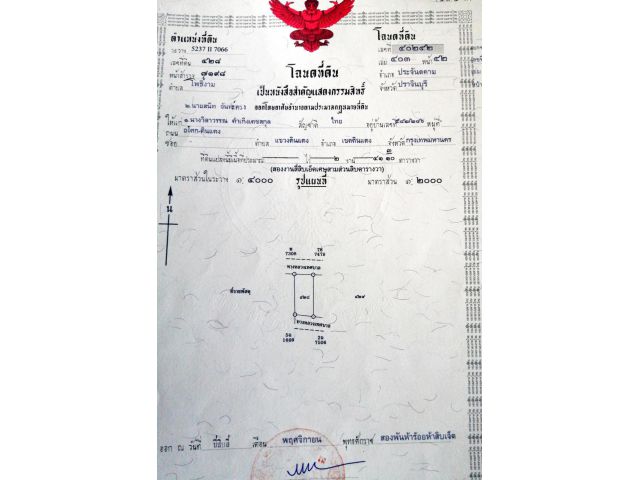 ตำแหน่งที่ดิน
ระวาง 5237 II 7066
เลขที่ดิน ๔๒๘
หน้าสำรวจ ๗๑๙๘
ตำบล โพธิ์งาม
โฉนดที่ดิน
เลขที่ ๔๐๒๔๒
เล่ม ๔๐๓ หน้า ๔๒
อำเภอ ประจันตคาม
จังหวัด ปราจีนบุรี
โฉนดที่ดิน
เป็นหนังสือสำคัญแสดงกรรมสิทธิ์
ออกโดยอาศัยอำนาจตามประมวลกฎหมายที่ดิน
ให้แก่ ๑ นางวิลาวรรณ สัญชาติ ไทย อยู่บ้านเลขที่ หมู่ที่
ถนน อโศก-ดินแดง ตำบล แขวงดินแดง อำเภอ เขตดินแดง จังหวัด กรุงเทพมหานคร
ซอย
ที่ดินแปลงนี้มีเนื้อที่ประมาณ ไร่ ๒ งาน ๔๑ ๓/๑๐ ตารางวา
(สองงานสี่สิบเอ็ดเศษสามส่วนสิบตารางวา)
มาตราส่วนในระวาง ๑: ๔๐๐๐ รูปแผนที่ มาตราส่วน ๑: ๒๐๐๐
น
7308 7478
ทางหลวงเทศบาล
ที่ราชพัสดุ ๔๒๘ ๔๒๙
ทางหลวงเทศบาล
ออก ณ วันที่ ยี่สิบสี่ เดือน พฤศจิกายน พุทธศักราช สองพันห้าร้อยห้าสิบเจ็ด